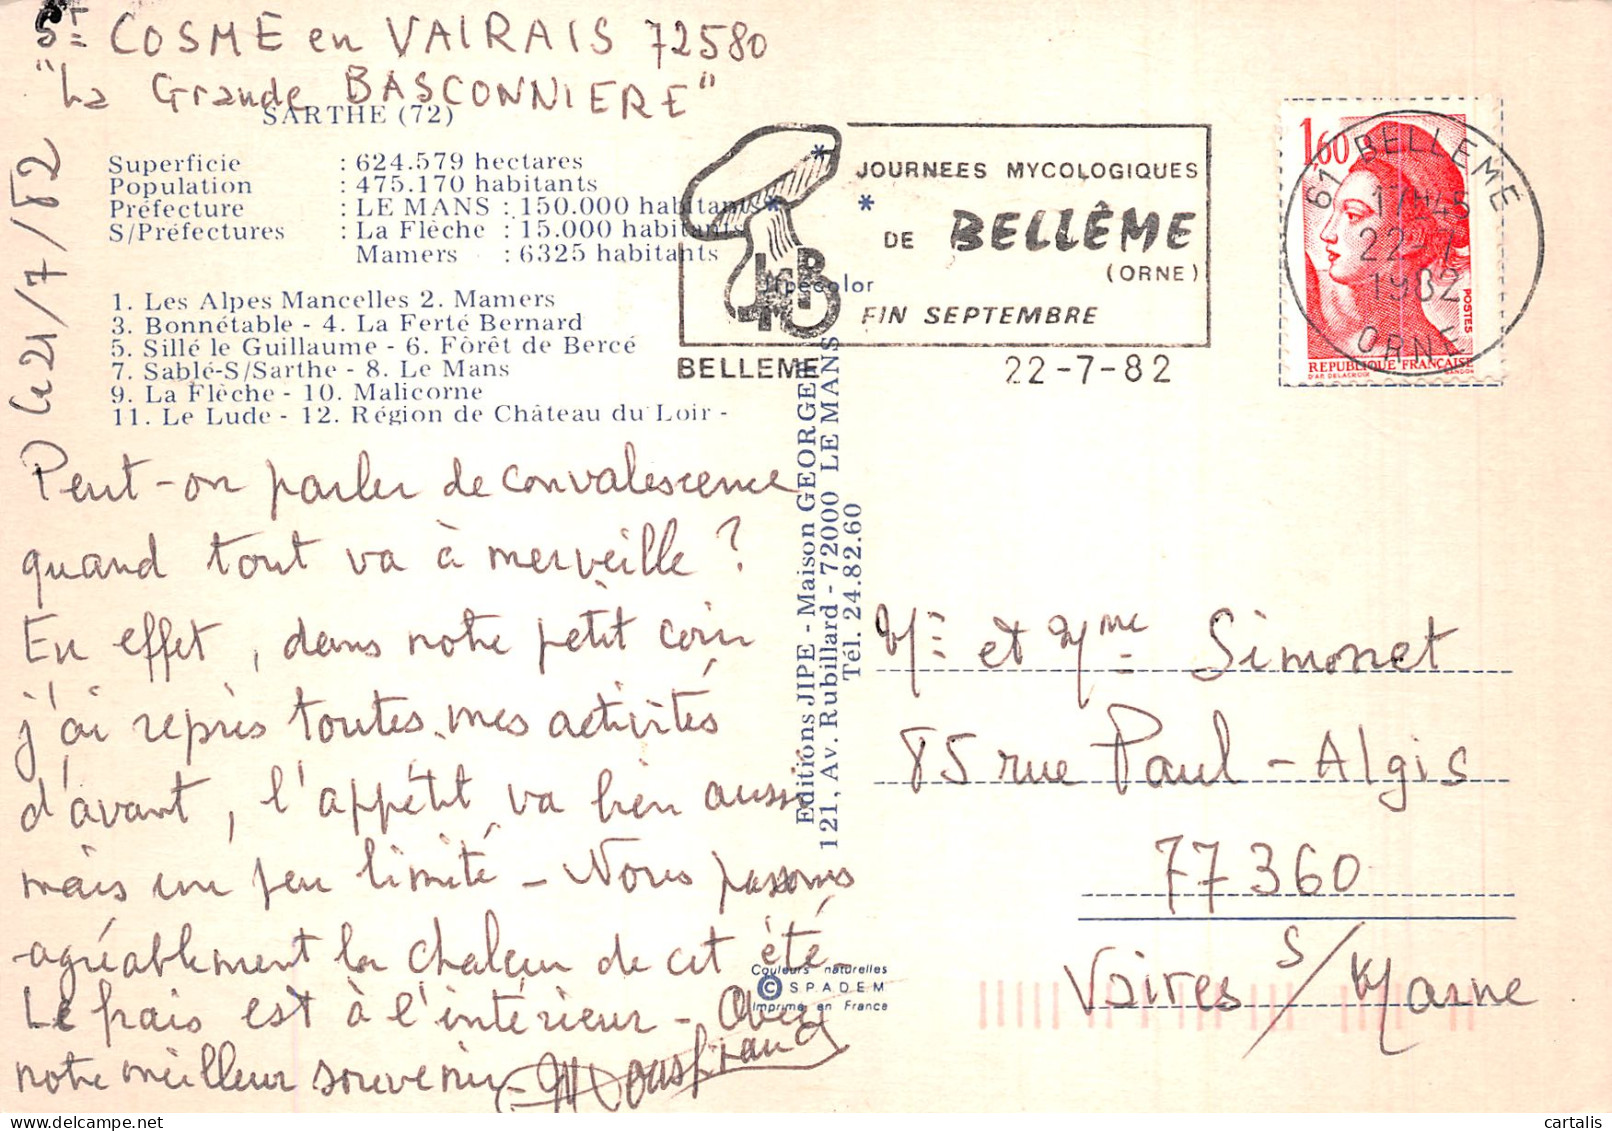 St COSME en VAIRAIS 72580
"La Grande BASCONNIERE"
Le 21/7/82
SARTHE (72)
Superficie : 624.579 hectares
Population : 475.170 habitants
Préfecture : LE MANS : 150.000 habitants
S/Préfectures : La Flèche : 15.000 habitants
Mamers : 6325 habitants
1. Les Alpes Mancelles 2. Mamers
3. Bonnétable - 4. La Ferté Bernard
5. Sillé le Guillaume - 6. Fôrêt de Bercé
7. Sablé-S/Sarthe - 8. Le Mans
9. La Flèche - 10. Malicorne
11. Le Lude - 12. Région de Château du Loir -
Peut-on parler de convalescence
quand tout va à merveille ?
En effet, dans notre petit coin
j'ai repris toutes mes activités
d'avant, l'appétit va bien aussi
mais un peu limité - Nous passons
agréablement la chaleur de cet été -
Le frais est à l'intérieur - Avec
notre meilleur souvenir -
Jipécolor
Editions JIPE - Maison GEORGE
121, Av. Rubillard - 72000 LE MANS
Tél. 24.82.60
Couleurs naturelles
© SPADEM
Imprimé en France
JOURNEES MYCOLOGIQUES
DE BELLÊME
(ORNE)
FIN SEPTEMBRE
BELLEME 22-7-82
61 BELLEME
17H45
22-7
1982
ORNE
1,60
POSTES
REPUBLIQUE FRANÇAISE
D'AP. DELACROIX GANDON
Mr et Mme Simonet
85 rue Paul-Algis
77360
Vaires s/Marne
cartalis